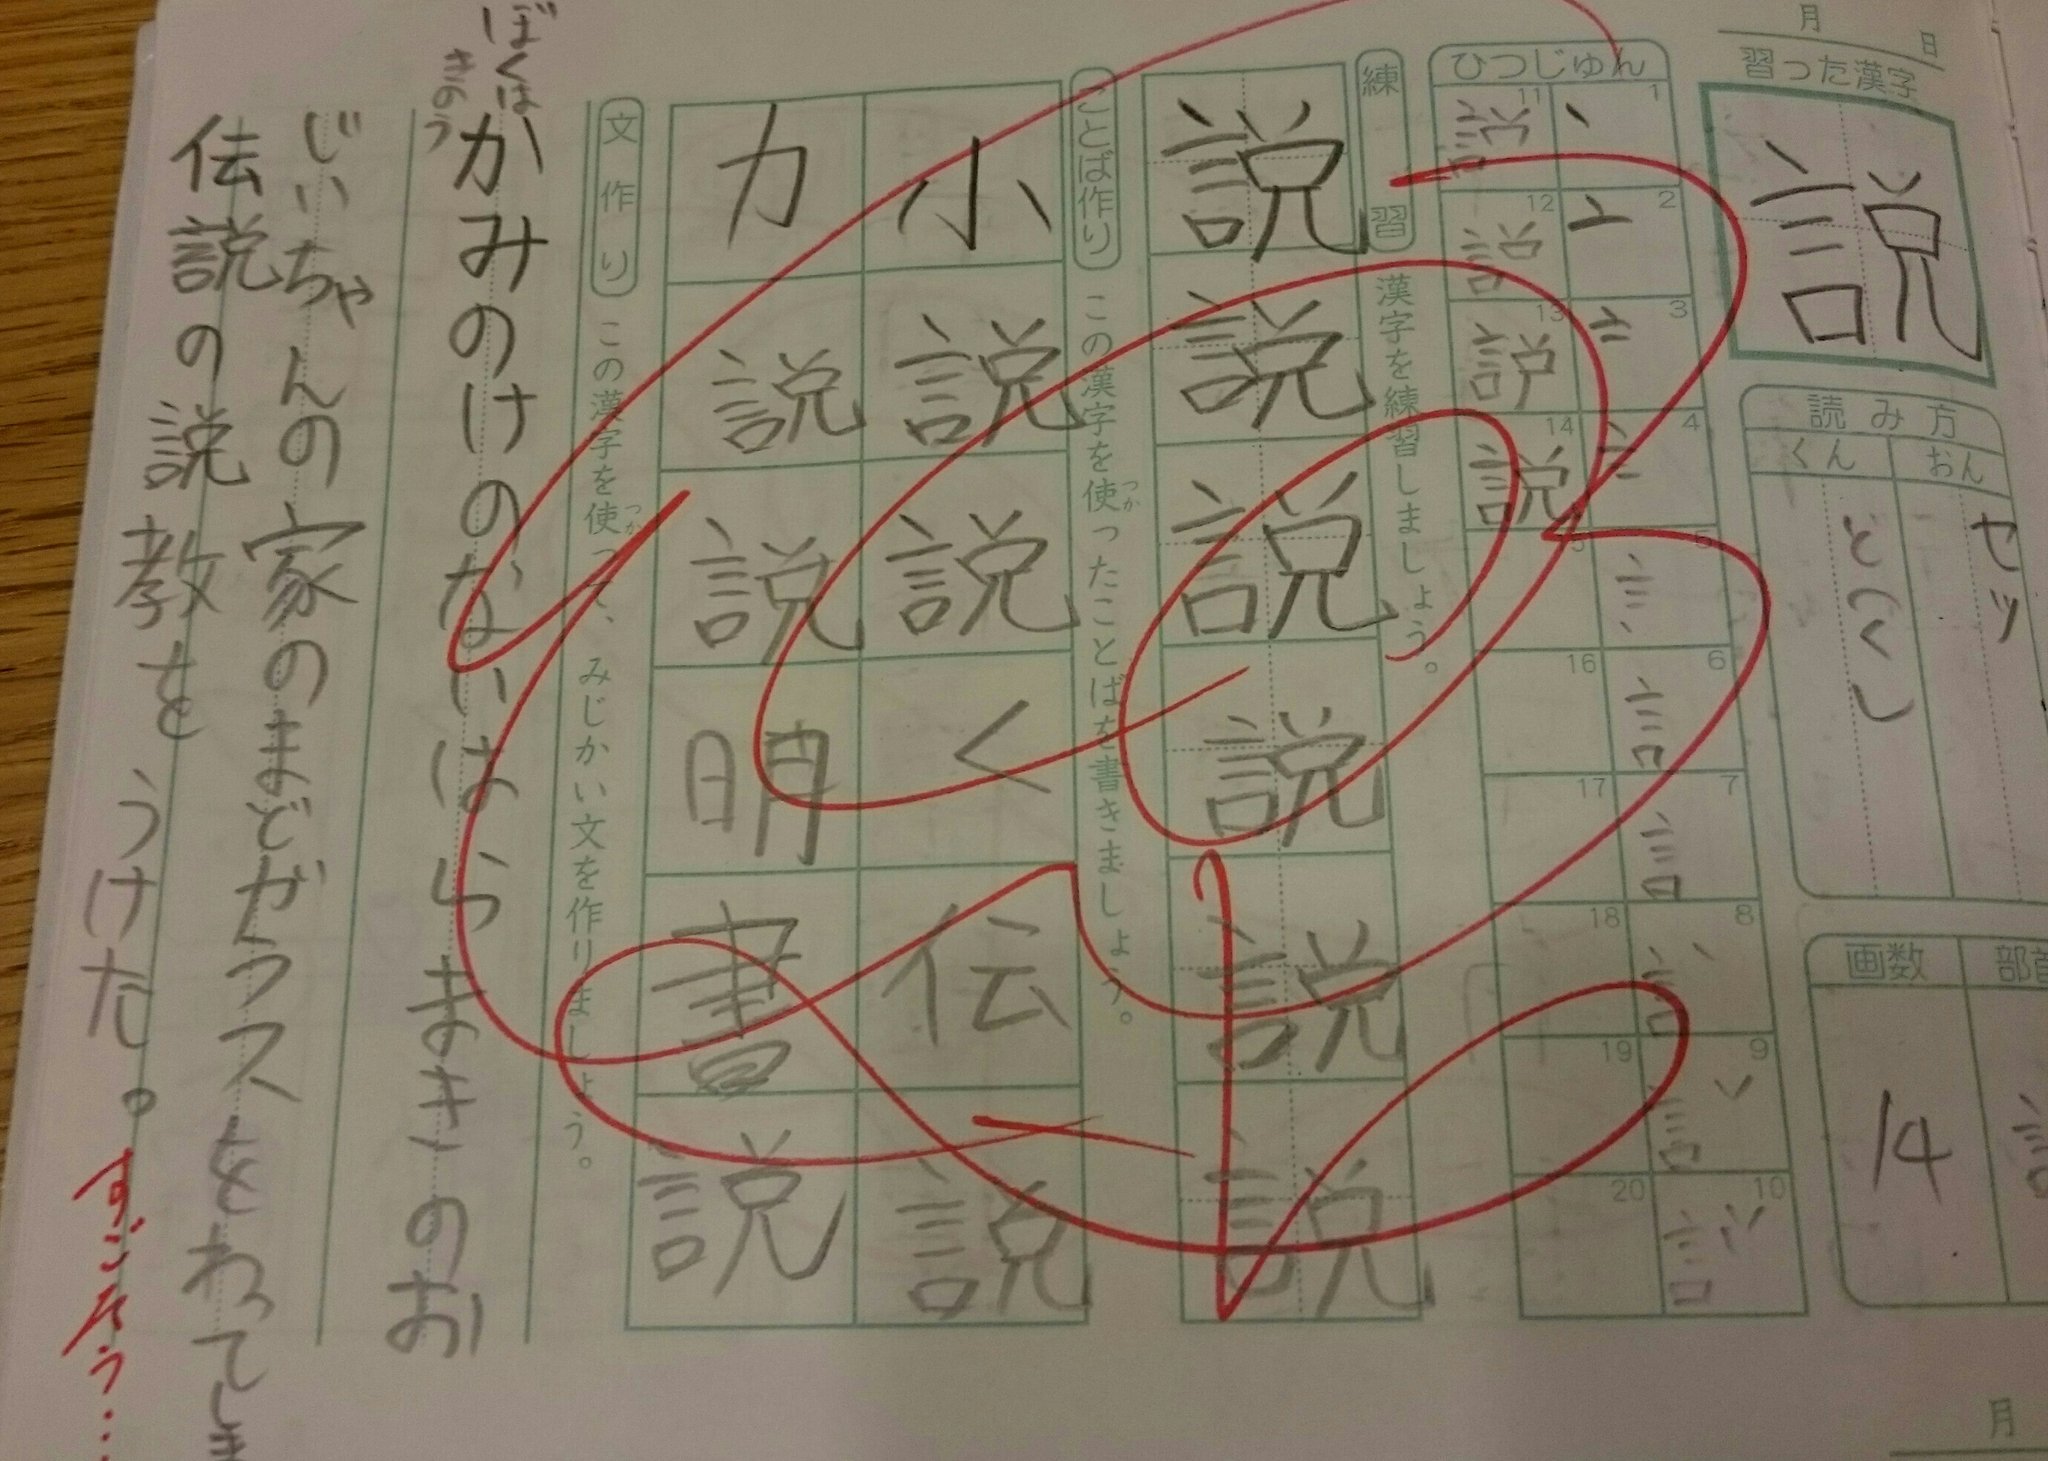 月 日
習った漢字
説
読み方
おん
セツ
くん
と(く)
画数
14
ひつじゅん
1 2 3 4 5 6 7 8 9 10
11 12 13 14 16 17 18 19 20
練習 漢字を練習しましょう。
説説説説説説
ことば作り この漢字を使ったことばを書きましょう。
つか
小説説く伝説
力説説明書説
文作り この漢字を使って、みじかい文を作りましょう。
つか
ぼくは
きのう
かみのけのないはらまきのお
じいちゃんの家のまどガラスをわってしま
伝説の説教をうけた。
すごそう…
月